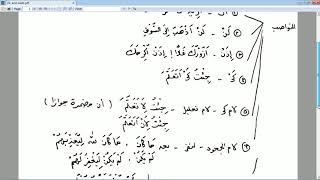 النواصب
② كَيْ - لَنْ أَذْهَبَ إِلَى السُّوْقِ
③ إِذَنْ - أَزُوْرُكَ غَدًا! إِذَنْ أُكْرِمَكَ
④ كَيْ - جِئْتُ كَيْ أَتَعَلَّمَ
⑤ لام كي - لام تعليل - جِئْتُ لِأَتَعَلَّمَ (أن مضمرة جوازا)
جِئْتُ لِأَنْ أَتَعَلَّمَ
⑥ لام الجحود - مَا كَانَ الله لِيُعَذِّبَهُمْ
لَمْ يَكُنْ - لَمْ يَكُنْ لِيَغْفِرَ لَهُمْ